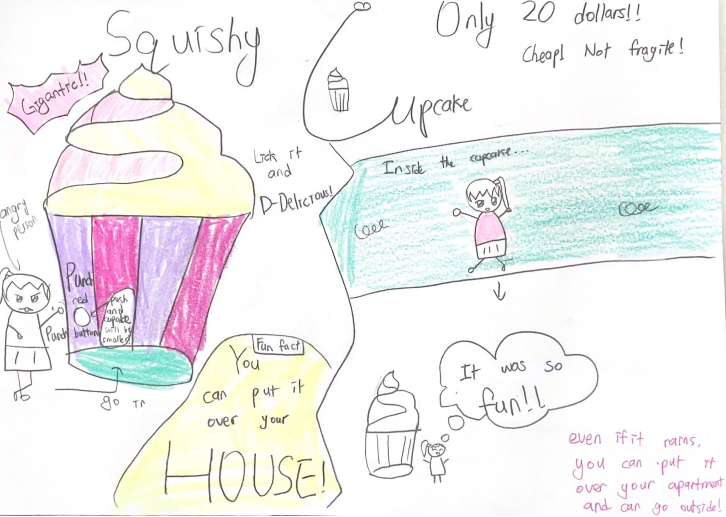 Squishy
Cupcake
Only 20 dollars!!
Cheap! Not fragile!
Gigantic!!
Lick it
and
D-Delicious!
Inside the cupcake...
angry
person
Punch
red
Punch button
push
and
cupcake
will be
smaller!
go in
Fun fact
You
can put it
over your
HOUSE!
It was so
fun!!
even if it rains,
you can put it
over your apartment
and can go outside!